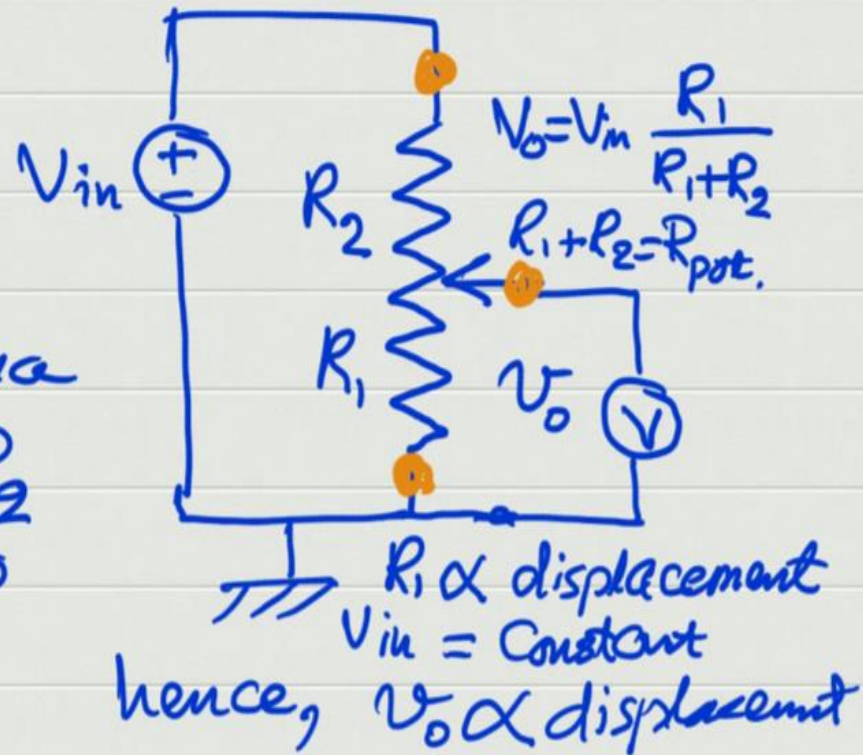 Vin
+
-
R2
R1
V0=Vin R1/R1+R2
R1+R2=Rpot.
v0
V
R1 ∝ displacement
Vin = Constant
hence, v0 ∝ displacemnt